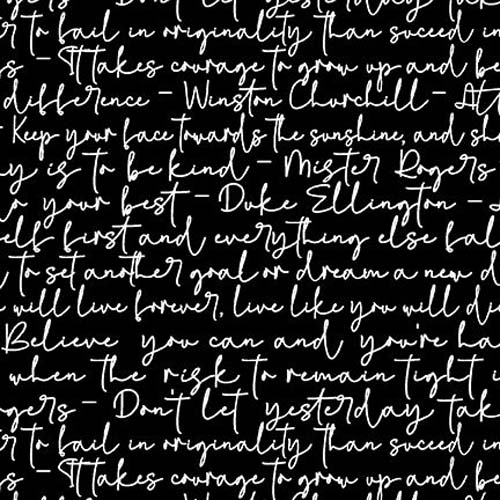 Don't let yesterday tak
r to fail in originality than suceed in
s - It takes courage to grow up and be
difference - Winston Churchill - At
Keep your face towards the sunshine, and sh
y is to be kind - Mister Rogers
o your best - Duke Ellington -
elf first and everything else fal
to set another goal or dream a new d
will live forever, live like you will di
Believe you can and you're ha
when the risk to remain tight i
gers - Don't let yesterday tak
r to fail in originality than suceed in
s - It takes courage to grow up and be
Winston Churchill